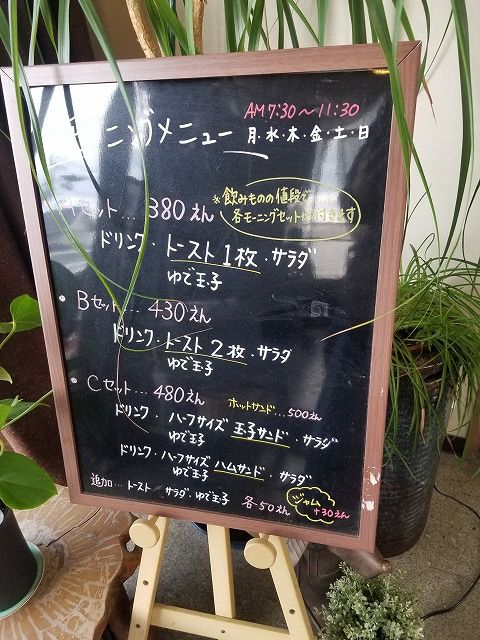 モーニングメニュー
AM7:30～11:30
月・水・木・金・土・日
※飲みものの値段で
各モーニングセットが付きます
Aセット…380えん
ドリンク・トースト1枚・サラダ
ゆで玉子
・Bセット…430えん
ドリンク・トースト2枚・サラダ
ゆで玉子
・Cセット…480えん
ホットサンド…500えん
ドリンク・ハーフサイズ玉子サンド・サラダ
ゆで玉子
ドリンク・ハーフサイズハムサンド・サラダ
ゆで玉子
追加…トースト サラダ・ゆで玉子 各50えん
ジャム
+30えん